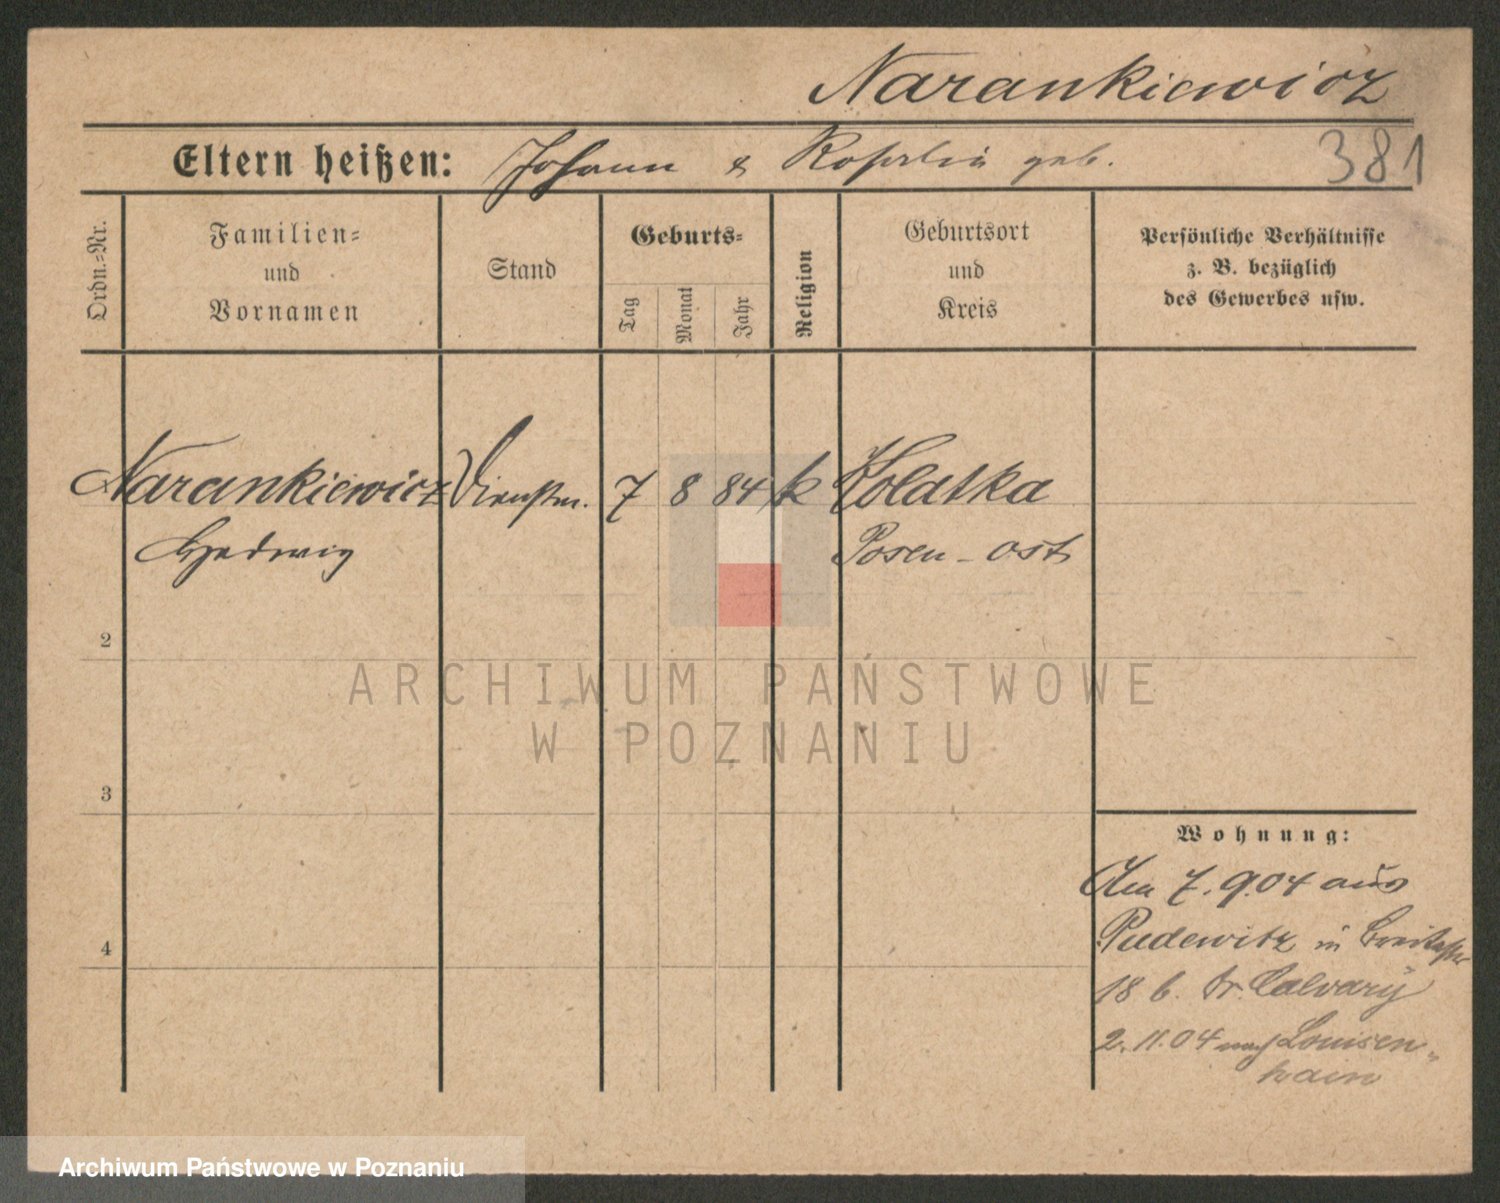 Narankiewicz
Eltern heißen: Johann & geb.
381
Ordn.-Nr.
Familien-
und
Vornamen
Stand
Geburts-
Tag
Monat
Jahr
Religion
Geburtsort
und
Kreis
Persönliche Verhältnisse
z. B. bezüglich
des Gewerbes usw.
Narankiewicz Dienstm. 7 8 84 k Kolatka
Hedwig Posen-ost
2
3
4
ARCHIWUM PAŃSTWOWE
W POZNANIU
Wohnung:
Am 7.9.04 aus
Pudewitz in Breitestr
18 b. Dr. Calvary
2.11.04 nach Louisen-
hain
Archiwum Państwowe w Poznaniu